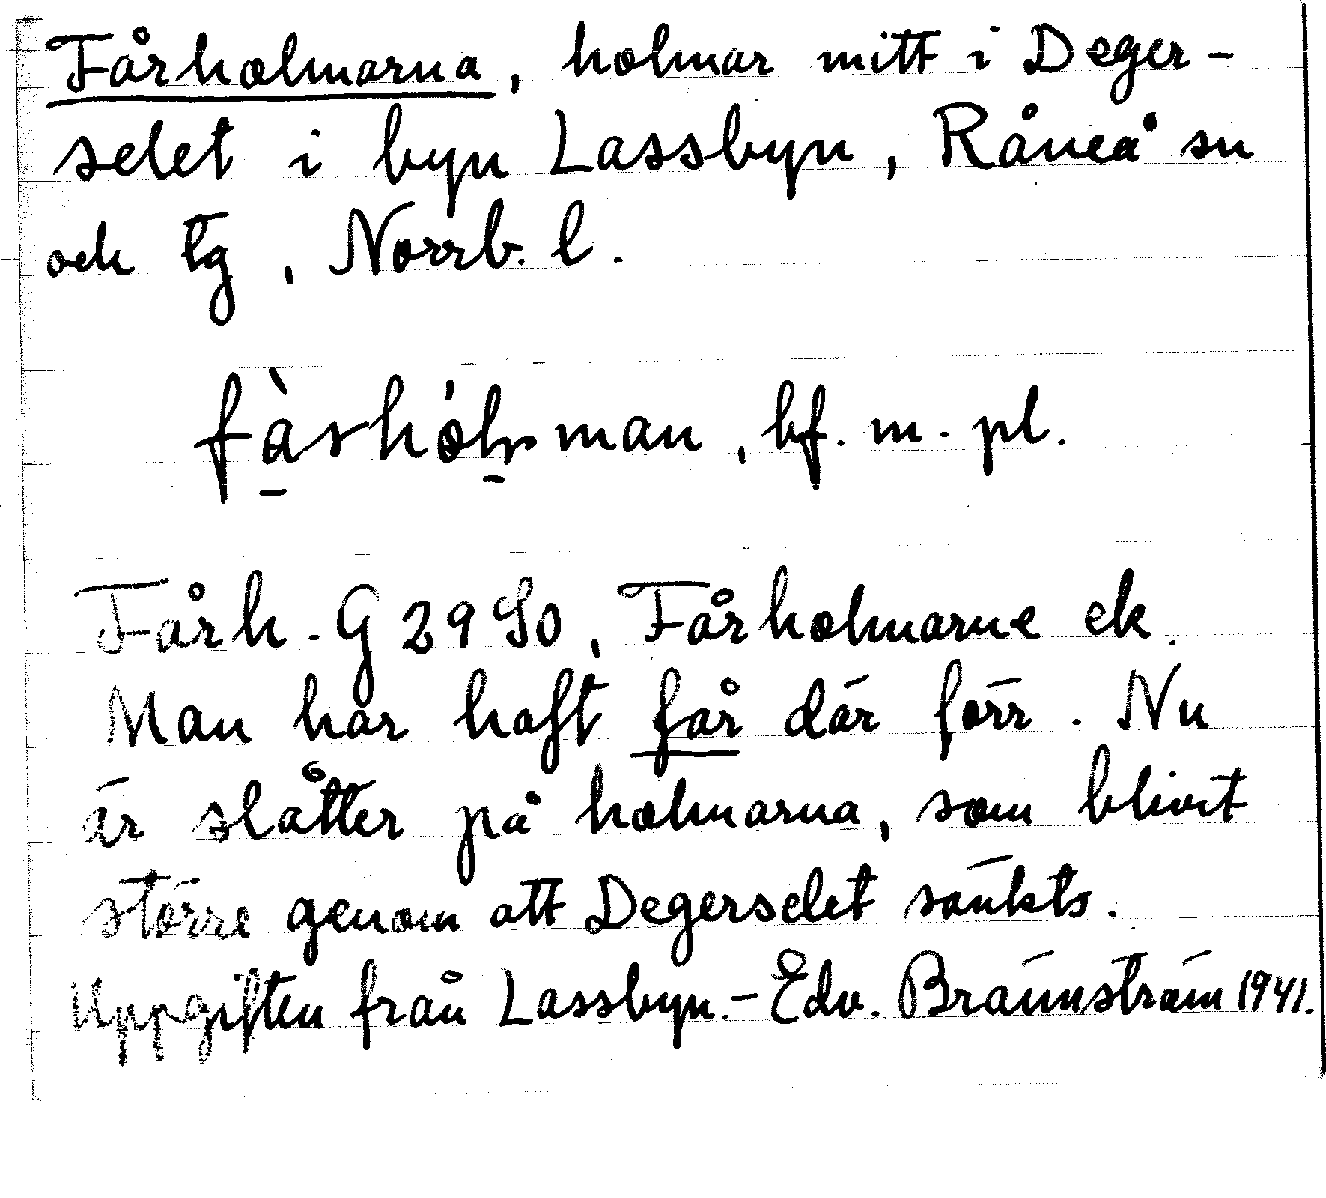 Fårholmarna, holmar mitt i Deger-
selet i byn Lassbyn, Råneå sn
och tg, Norrb. l.
bf. m. pl.
Fårh. G 29 SO, Fårholmarne ek.
Man har haft får där förr. Nu
är slåtter på holmarna, som blivit
större genom att Degerselet sänkts.
Uppgiften från Lassbyn. - Edv. Brännström 1941.